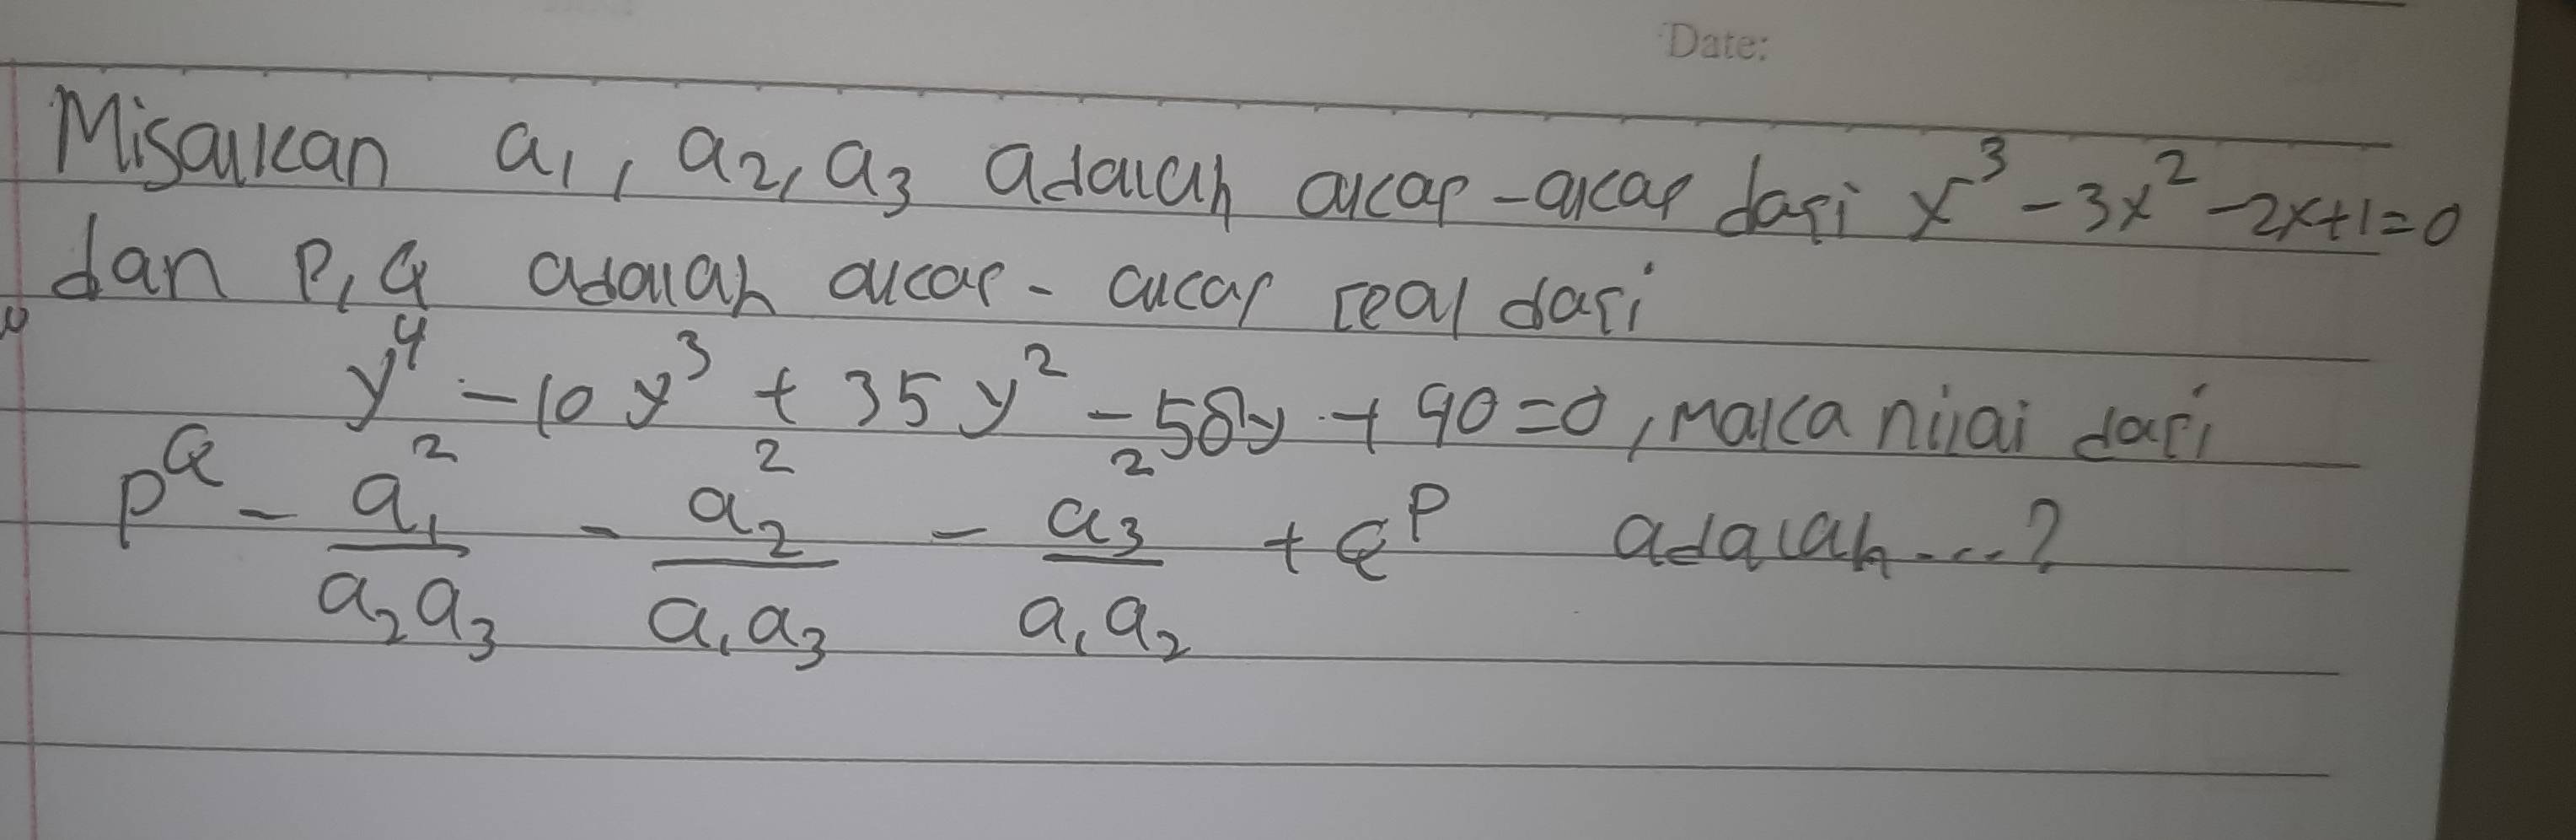 Date:
Misalkan a₁, a₂, a₃ adalah akar-akar dari x³ - 3x² - 2x + 1 = 0
dan P, Q adalah akar-akar real dari
y⁴ - 10y³ + 35y² - 50y + 90 = 0, maka nilai dari
P^Q - a₁²/(a₂a₃) - a₂²/(a₁a₃) - a₃²/(a₁a₂) + Q^P adalah....?